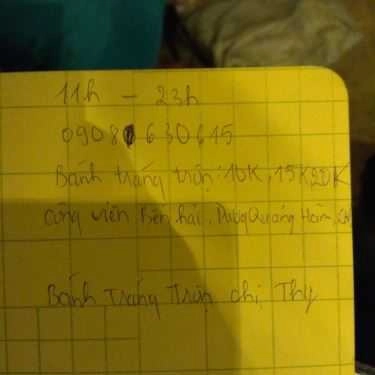 11h - 23h
0908 630645
Bánh tráng trộn: 10K, 15K, 20K
Công viên Bến hải, Dương Quảng Hàm,
Bánh Tráng Trộn chị Thy